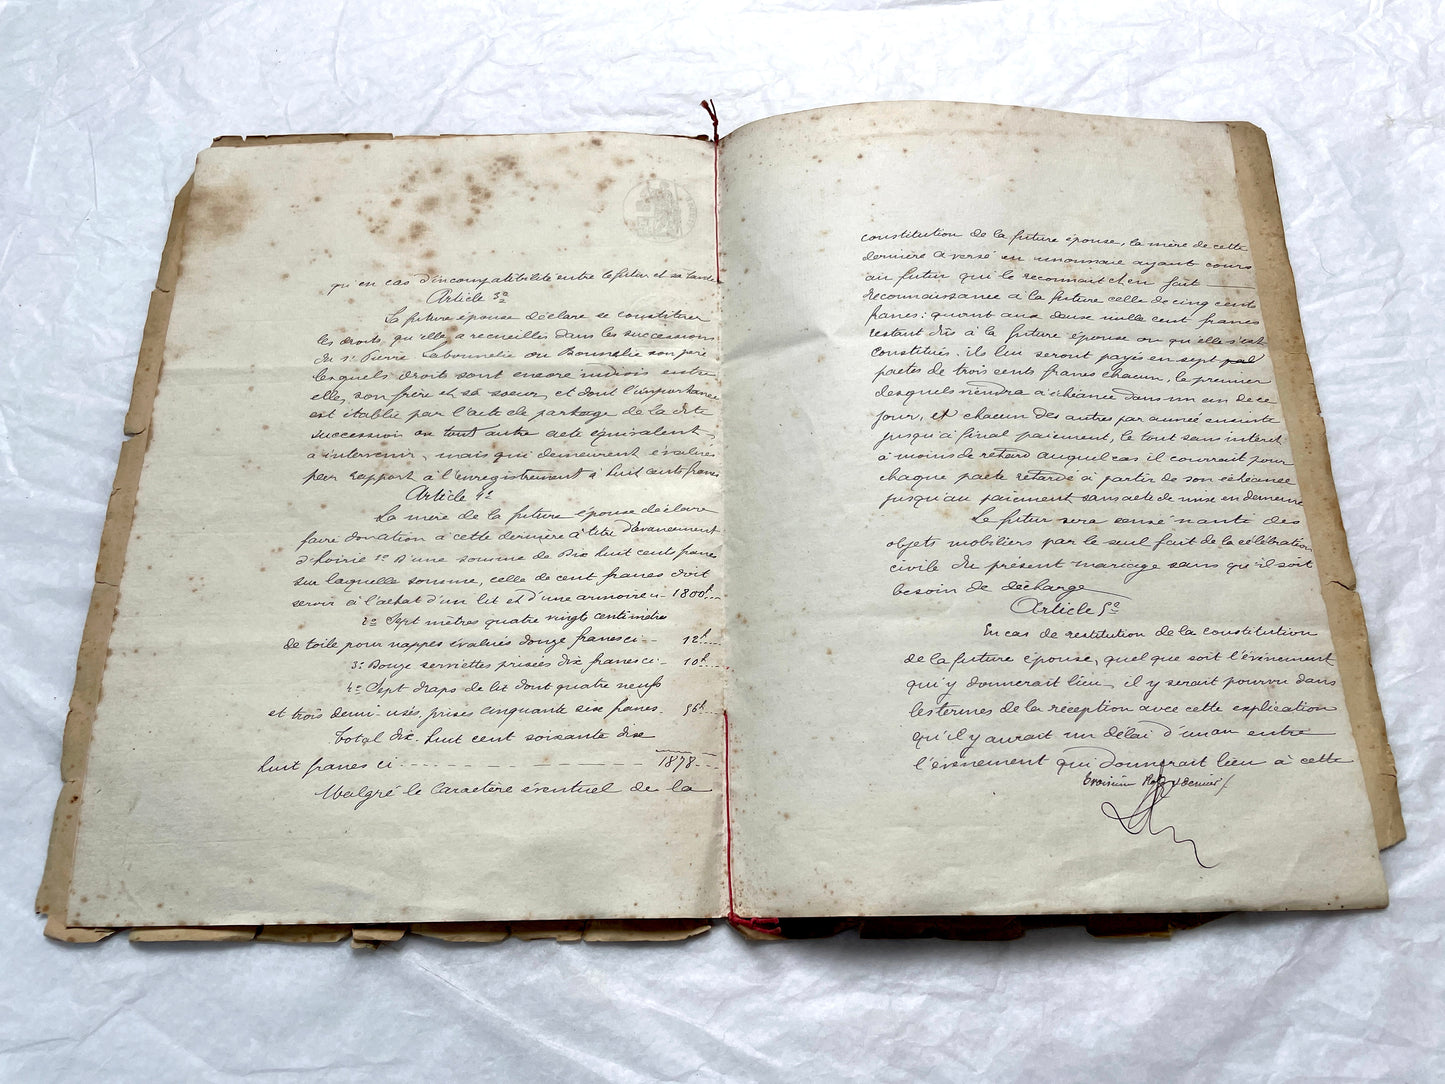 qu'en cas d'incompatibilité entre le futur et sa tante
Article 3e
La future épouse déclare se constituer
les droits qu'elle a recueillis dans les successions
du sr Pierre Labounelie ou Bounelie son père
lesquels droits sont encore indivis entre
elle, son frère et sa soeur, et dont l'importance
est établie par l'acte de partage de la dite
succession ou tout autre acte équivalent
à intervenir, mais qui demeurent évalués
par rapport à l'enregistrement à huit cents francs
Article 4e
La mère de la future épouse déclare
faire donation à cette dernière à titre d'avancement
d'hoirie 1o D'une somme de Dix huit cents francs
sur laquelle somme, celle de cent francs doit
servir à l'achat d'un lit et d'une armoire ci 1800f
2o Sept mètres quatre vingts centimètres
de toile pour nappes évalués douze francs ci 12f
3o Douze serviettes prisées dix francs ci 10f
4o Sept draps de lit dont quatre neufs
et trois demi-usés, prisés cinquante six francs 56f
Total dix-huit cent soixante dix
huit francs ci 1878
Malgré le caractère éventuel de la
constitution de la future épouse, la mère de cette
dernière a versé en monnaie ayant cours
au futur qui le reconnait et en fait
reconnaissance à la future celle de cinq cents
francs; quant aux douze mille cent francs
restant dûs à la future épouse ou qu'elle s'est
constitués, ils lui seront payés en sept
pactes de trois cents francs chacun, le premier
desquels viendra à échéance dans un an de ce
jour, et chacun des autres par année ensuite
jusqu'à final paiement, le tout sans intérêt
à moins de retard auquel cas il courrait pour
chaque pacte retardé à partir de son échéance
jusqu'au paiement sans acte de mise en demeure
Le futur sera censé nanti des
objets mobiliers par le seul fait de la célébration
civile du présent mariage sans qu'il soit
besoin de décharge
Article 5e
En cas de restitution de la constitution
de la future épouse, quel que soit l'évènement
qui y donnerait lieu, il y serait pourvu dans
les termes de la réception avec cette explication
qu'il y aurait un délai d'un an entre
l'évènement qui donnerait lieu à cette
troisième Rôle & dernier